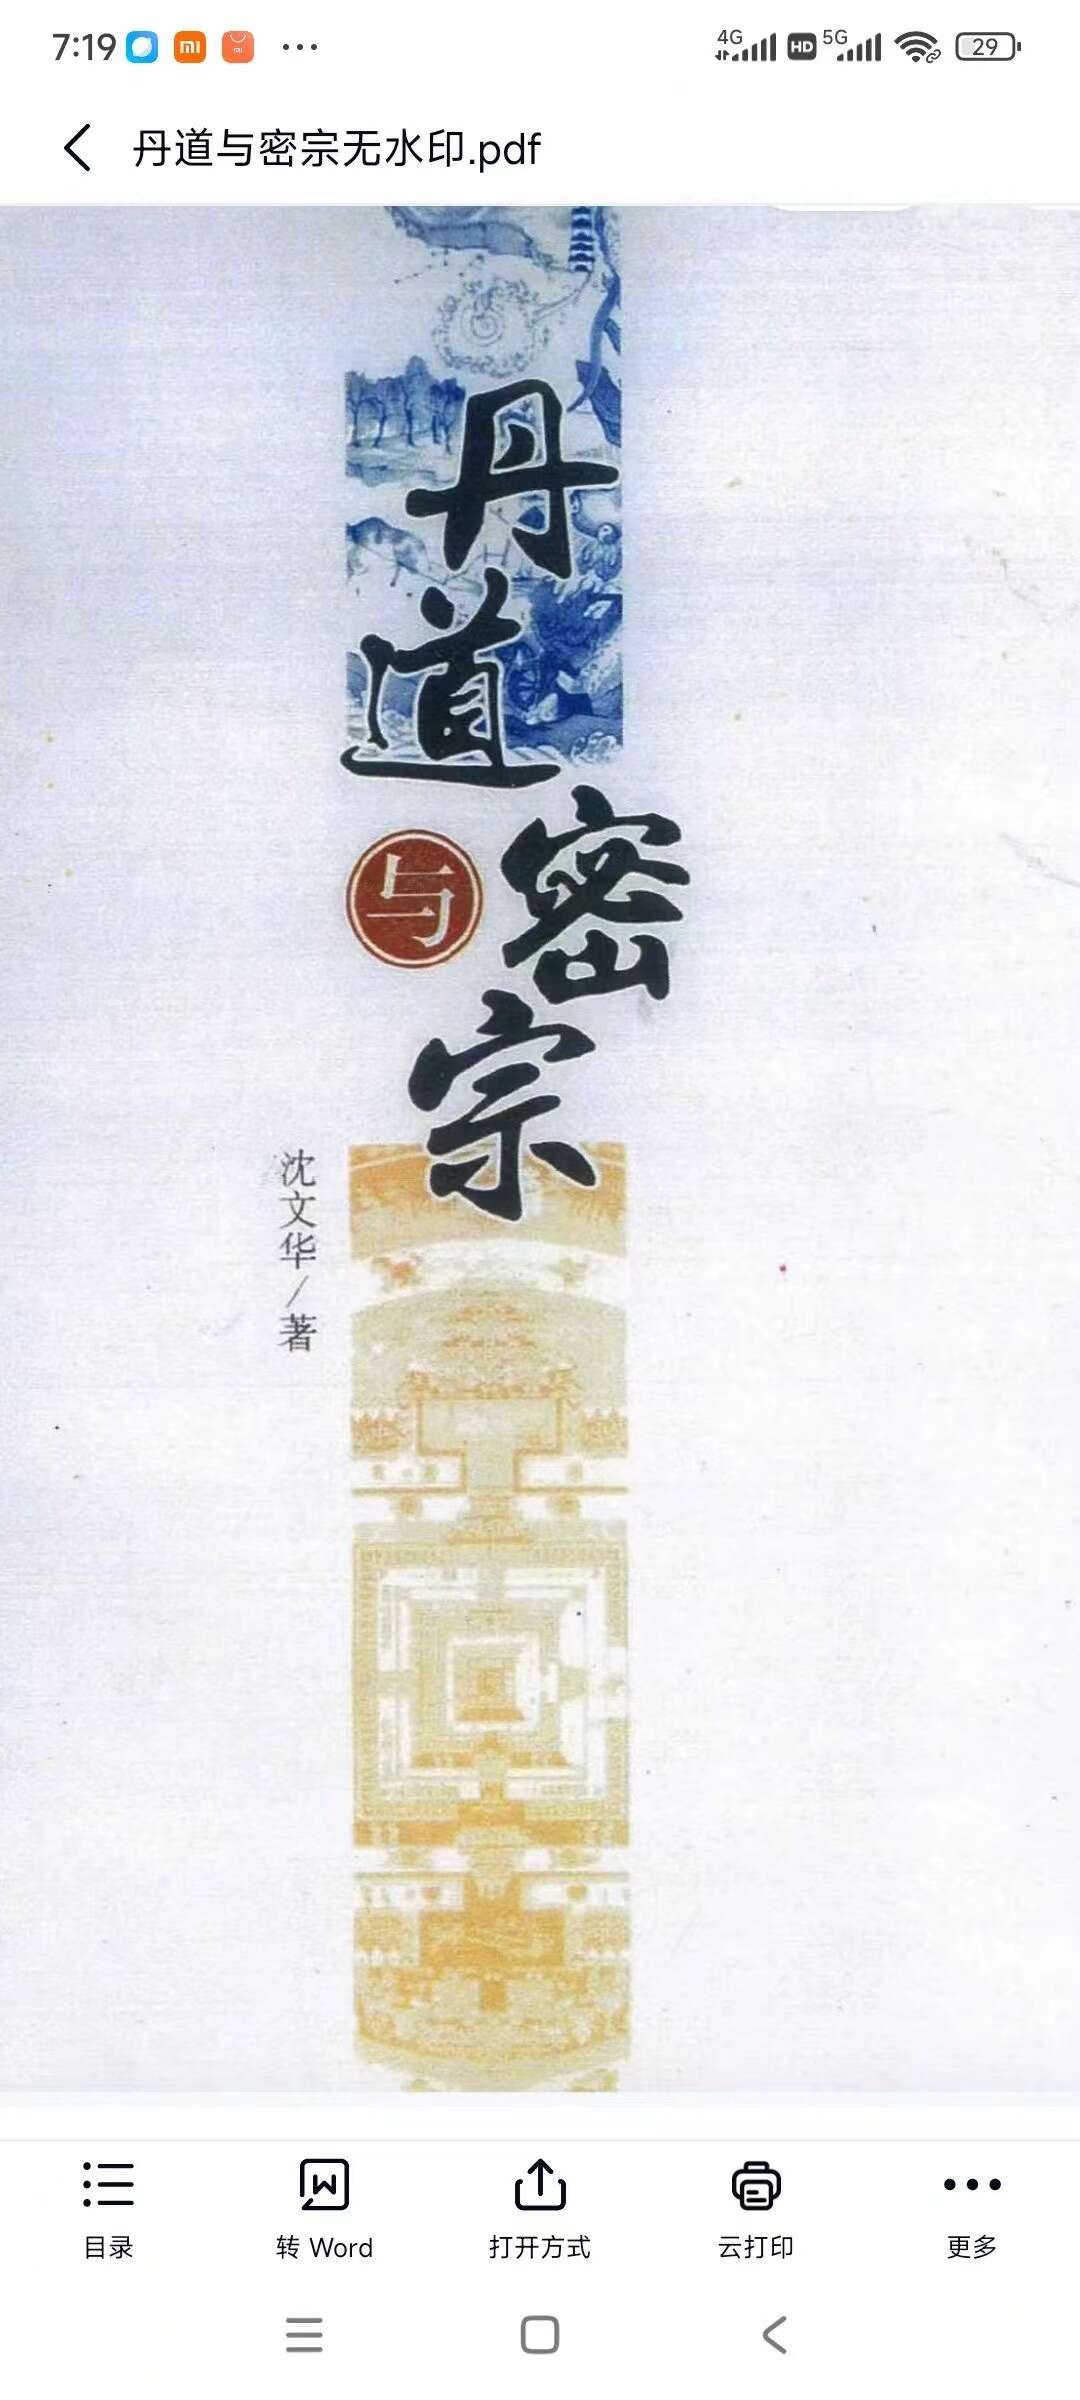 7:19
4G HD 5G 29
丹道与密宗无水印.pdf
丹道
与
密宗
沈文华/著
目录
转 Word
打开方式
云打印
更多